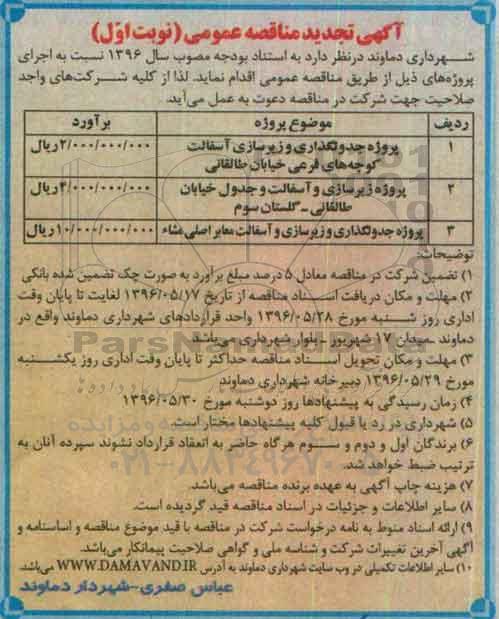 آگهی تجدید مناقصه عمومی (نوبت اوّل)
شهرداری دماوند درنظر دارد به استناد بودجه مصوب سال ۱۳۹۶ نسبت به اجرای
پروژه‌های ذیل از طریق مناقصه عمومی اقدام نماید. لذا از کلیه شرکت‌های واجد
صلاحیت جهت شرکت در مناقصه دعوت به عمل می‌آید.
ردیف موضوع پروژه برآورد
۱ پروژه جدولگذاری و زیرسازی آسفالت کوچه‌های فرعی خیابان طالقانی ۲/۰۰۰/۰۰۰/۰۰۰ ریال
۲ پروژه زیرسازی و آسفالت و جدول خیابان طالقانی ـ گلستان سوم ۴/۰۰۰/۰۰۰/۰۰۰ ریال
۳ پروژه جدولگذاری و زیرسازی و آسفالت معابر اصلی مشاء ۱۰/۰۰۰/۰۰۰/۰۰۰ ریال
توضیحات:
۱) تضمین شرکت در مناقصه معادل ۵ درصد مبلغ برآورد به صورت چک تضمین شده بانکی
۲) مهلت و مکان دریافت اسناد مناقصه از تاریخ ۱۳۹۶/۰۵/۱۷ لغایت تا پایان وقت
اداری روز شنبه مورخ ۱۳۹۶/۰۵/۲۸ واحد قراردادهای شهرداری دماوند واقع در
دماوند ـ میدان ۱۷ شهریور ـ بلوار شهرداری می‌باشد
۳) مهلت و مکان تحویل اسناد مناقصه حداکثر تا پایان وقت اداری روز یکشنبه
مورخ ۱۳۹۶/۰۵/۲۹ دبیرخانه شهرداری دماوند
۴) زمان رسیدگی به پیشنهادها روز دوشنبه مورخ ۱۳۹۶/۰۵/۳۰
۵) شهرداری در رد یا قبول کلیه پیشنهادها مختار است.
۶) برندگان اول و دوم و سوم هرگاه حاضر به انعقاد قرارداد نشوند سپرده آنان به
ترتیب ضبط خواهد شد.
۷) هزینه چاپ آگهی به عهده برنده مناقصه می‌باشد.
۸) سایر اطلاعات و جزئیات در اسناد مناقصه قید گردیده است.
۹) ارائه اسناد منوط به نامه درخواست شرکت در مناقصه با قید موضوع مناقصه و اساسنامه و
آگهی آخرین تغییرات شرکت و شناسه ملی و گواهی صلاحیت پیمانکار می‌باشد.
۱۰) سایر اطلاعات تکمیلی در وب سایت شهرداری دماوند به آدرس WWW.DAMAVAND.IR می‌باشد.
عباس صفری-شهردار دماوند